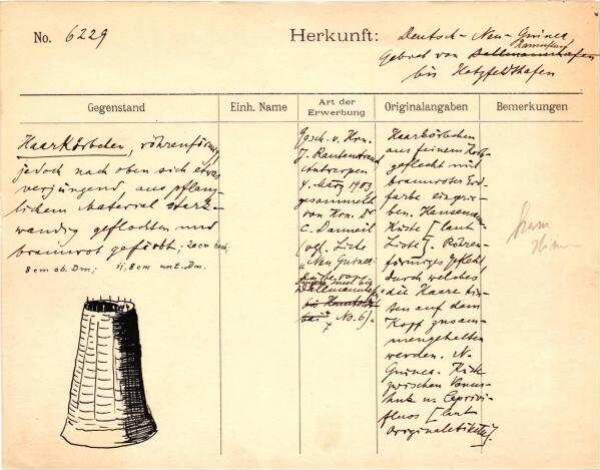 No. 6229
Herkunft: Deutsch-Neu-Guinea,
Gebiet von Dallmannhafen
bis Hatzfeldthafen
Gegenstand
Einh. Name
Art der Erwerbung
Originalangaben
Bemerkungen
Haarkörbchen, röhrenförmig,
jedoch nach oben sich etwas
verjüngend, aus pflanz-
lichem Material stark-
wandig geflochten und
braunrot gefärbt; 20 cm hoch,
8 cm ob. Dm; 11,8 cm unt. Dm.
Gesch. v. Hrn.
J. Rautenstrauch
Antwerpen
4. März 1903
gesammelt
von Hrn. Dr
C.
(vgl. Liste
"Neu Guinea
No. 6).
Haarkörbchen
aus feinem
geflecht mit
braunroter Erd-
farbe eingerie-
ben. Hansemann
Küste [laut
Liste]. Röhren-
förmiges Geflecht,
durch welches
die Haare hin-
ten auf dem
Kopf zusam-
mengehalten
werden. N.
Guinea. Küste
zwischen Venus-
huk u. Caprivi-
fluss [laut
Originaletikette].